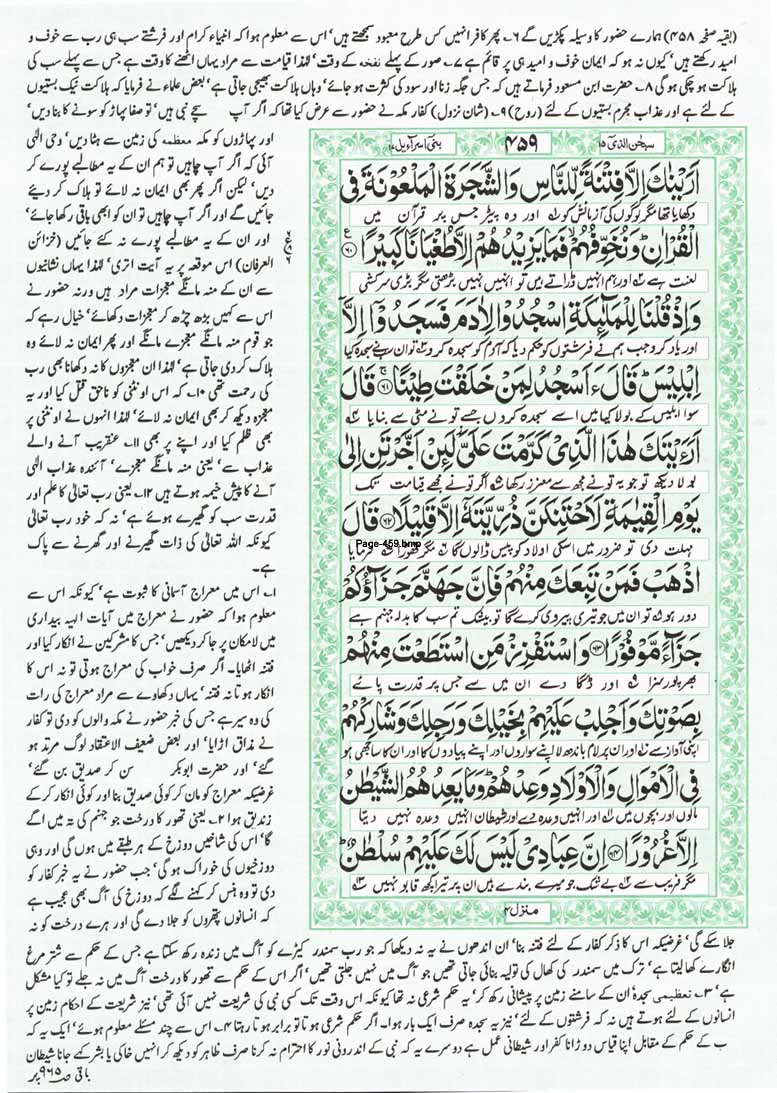 (بقیہ صفحہ ۴۵۸) ہمارے حضور کا وسیلہ پکڑیں گے ۶۔ پھر کافر انہیں کس طرح معبود سمجھتے ہیں' اس سے معلوم ہوا کہ انبیاء کرام اور فرشتے سب ہی رب سے خوف و
امید رکھتے ہیں' کیوں نہ ہو کہ ایمان خوف و امید ہی پر قائم ہے ۷۔ صور کے پہلے نفخہ کے وقت' لہٰذا قیامت سے مراد یہاں اٹھنے کا وقت ہے جس سے پہلے سب کی
ہلاکت ہو چکی ہو گی ۸۔ حضرت ابن مسعود فرماتے ہیں کہ جس جگہ زنا اور سود کی کثرت ہو جائے' وہاں ہلاکت بھیجی جاتی ہے' بعض علماء نے فرمایا کہ ہلاکت نیک بستیوں
کے لئے ہے اور عذاب مجرم بستیوں کے لئے (روح) ۹۔ (شان نزول) کفار مکہ نے حضور سے عرض کیا تھا کہ اگر آپ سچے نبی ہیں' تو صفا پہاڑ کو سونے کا بنا دیں'
اور پہاڑوں کو مکہ معظمہ کی زمین سے ہٹا دیں' وحی الٰہی
آئی کہ اگر آپ چاہیں تو ہم ان کے یہ مطالبے پورے کر
دیں' لیکن اگر پھر بھی ایمان نہ لائے تو ہلاک کر دیئے
جائیں گے اور اگر آپ چاہیں تو ان کو ابھی باقی رکھا جائے'
اور ان کے یہ مطالبے پورے نہ کئے جائیں (خزائن
العرفان) اس موقعہ پر یہ آیت اتری' لہٰذا یہاں نشانیوں
سے ان کے منہ مانگے معجزات مراد ہیں ورنہ حضور نے
اس سے کہیں بڑھ چڑھ کر معجزات دکھائے' خیال رہے کہ
جو قوم منہ مانگے معجزے مانگے اور پھر ایمان نہ لائے وہ
ہلاک کر دی جاتی ہے' لہٰذا ان معجزوں کا نہ دکھانا بھی رب
کی رحمت تھی ۱۰۔ کہ اس اونٹنی کو ناحق قتل کیا اور یہ
معجزہ دیکھ کر بھی ایمان نہ لائے' لہٰذا انہوں نے اونٹنی پر
بھی ظلم کیا اور اپنے پر بھی ۱۱۔ عنقریب آنے والے
عذاب سے' یعنی منہ مانگے معجزے' آئندہ عذاب الٰہی
آنے کا پیش خیمہ ہوتے ہیں ۱۲۔ یعنی رب تعالیٰ کا علم اور
قدرت سب کو گھیرے ہوئے ہے' نہ کہ خود رب تعالیٰ
کیونکہ اللہ تعالیٰ کی ذات گھیرنے اور گھرنے سے پاک
ہے۔
۱۔ اس میں معراج آسمانی کا ثبوت ہے' کیونکہ اس سے
معلوم ہوا کہ حضور نے معراج میں آیات الٰہیہ بیداری
میں لامکان پر جا کر دیکھیں' جس کا مشرکین نے انکار کیا اور
فتنہ اٹھایا۔ اگر صرف خواب کی معراج ہوتی تو نہ اس کا
انکار ہوتا نہ فتنہ' یہاں دکھاوے سے مراد معراج کی رات
کی وہ سیر ہے جس کی خبر حضور نے مکہ والوں کو دی تو کفار
نے مذاق اڑایا' اور بعض ضعیف الاعتقاد لوگ مرتد ہو
گئے' اور حضرت ابوبکر سن کر صدیق بن گئے'
غرضیکہ معراج کو مان کر کوئی صدیق بنا اور کوئی انکار کر کے
زندیق ہوا ۲۔ یعنی تھور کا درخت جو جہنم کی تہ میں اگے
گا' اس کی شاخیں دوزخ کے ہر طبقے میں ہوں گی اور وہی
دوزخیوں کی خوراک ہو گی' جب حضور نے یہ خبر کفار کو
دی تو وہ ہنس کر کہنے لگے کہ دوزخ کی آگ بھی عجیب ہے
کہ انسانوں پتھروں کو جلا دے گی اور ہرے درخت کو نہ
سبحٰن الذی ۱۵
۴۵۹
بنی اسرآءیل ۱۷
اَرَيْنٰكَ اِلَّا فِتْنَةً لِّلنَّاسِ وَالشَّجَرَةَ الْمَلْعُوْنَةَ فِی
دکھایا تھا مگر لوگوں کی آزمائش کو اور وہ پیڑ جس پر قرآن میں
الْقُرْاٰنِ ؕ وَنُخَوِّفُهُمْ ۙ فَمَا يَزِيْدُهُمْ اِلَّا طُغْيَانًا كَبِيْرًا ۶۰
لعنت ہے اور ہم انہیں ڈراتے ہیں تو انہیں نہیں بڑھتی مگر بڑی سرکشی
وَاِذْ قُلْنَا لِلْمَلٰٓئِكَةِ اسْجُدُوْا لِاٰدَمَ فَسَجَدُوْٓا اِلَّآ
اور یاد کرو جب ہم نے فرشتوں کو حکم دیا کہ آدم کو سجدہ کرو تو ان سب نے سجدہ کیا
اِبْلِيْسَ ؕ قَالَ ءَاَسْجُدُ لِمَنْ خَلَقْتَ طِيْنًا ۶۱ قَالَ
سوا ابلیس کے بولا کیا میں اسے سجدہ کروں جسے تو نے مٹی سے بنایا
اَرَءَيْتَكَ هٰذَا الَّذِیْ كَرَّمْتَ عَلَیَّ ؗ لَئِنْ اَخَّرْتَنِ اِلٰی
بولا دیکھ تو جو یہ تو نے مجھ سے معزز رکھا اگر تو نے مجھے قیامت تک
يَوْمِ الْقِيٰمَةِ لَاَحْتَنِكَنَّ ذُرِّيَّتَهٗٓ اِلَّا قَلِيْلًا ۶۲ قَالَ
Page-459.bmp
مہلت دی تو ضرور میں اسکی اولاد کو پیس ڈالوں گا مگر تھوڑا فرمایا
اذْهَبْ فَمَنْ تَبِعَكَ مِنْهُمْ فَاِنَّ جَهَنَّمَ جَزَآؤُكُمْ
دور ہو تو ان میں جو تیری پیروی کرے گا تو بیشک تم سب کا بدلہ جہنم ہے
جَزَآءً مَّوْفُوْرًا ۶۳ وَاسْتَفْزِزْ مَنِ اسْتَطَعْتَ مِنْهُمْ
بھر پور سزا اور ڈگا دے ان میں سے جس پر قدرت پائے
بِصَوْتِكَ وَاَجْلِبْ عَلَيْهِمْ بِخَيْلِكَ وَرَجِلِكَ وَشَارِكْهُمْ
اپنی آواز سے اور ان پر لام باندھ لا اپنے سواروں اور اپنے پیادوں کا اور ان کا ساجھی ہو
فِی الْاَمْوَالِ وَالْاَوْلَادِ وَعِدْهُمْ ؕ وَمَا يَعِدُهُمُ الشَّيْطٰنُ
مالوں اور بچوں میں اور انہیں وعدہ دے اور شیطان انہیں وعدہ نہیں دیتا
اِلَّا غُرُوْرًا ۶۴ اِنَّ عِبَادِیْ لَيْسَ لَكَ عَلَيْهِمْ سُلْطٰنٌ ؕ
مگر فریب سے بے شک جو میرے بندے ہیں ان پر تیرا کچھ قابو نہیں
منزل ۴
جلا سکے گی' غرضیکہ اس کا ذکر کفار کے لئے فتنہ بنا' ان اندھوں نے یہ نہ دیکھا کہ جو رب سمندر کیڑے کو آگ میں زندہ رکھ سکتا ہے جس کے حکم سے شتر مرغ
انگارے کھا لیتا ہے' ترک میں سمندر کی کھال کی تولیہ بنائی جاتی تھیں' جو آگ میں نہیں جلتی تھیں' اگر اس کے حکم سے تھور کا درخت آگ میں نہ جلے تو کیا مشکل
ہے' ۳۔ تعظیمی سجدہ' ان کے سامنے زمین پر پیشانی رکھ کر' یہ حکم شرعی نہ تھا کیونکہ اس وقت تک کسی نبی کی شریعت نہیں آئی تھی' نیز شریعت کے احکام زمین پر
انسانوں کے لئے ہوتے ہیں نہ کہ فرشتوں کے لئے' نیز یہ سجدہ صرف ایک بار ہوا۔ اگر حکم شرعی ہوتا تو برابر ہوتا رہتا ۴۔ اس سے چند مسئلے معلوم ہوئے' ایک یہ کہ
ب کے حکم کے مقابل اپنا قیاس دوڑانا کفر اور شیطانی عمل ہے دوسرے یہ کہ نبی کے اندرونی نور کا احترام نہ کرنا صرف ظاہر کو دیکھ کر انہیں خاکی یا بشر کہے جانا شیطان
باقی ص ۹۶۵ پر